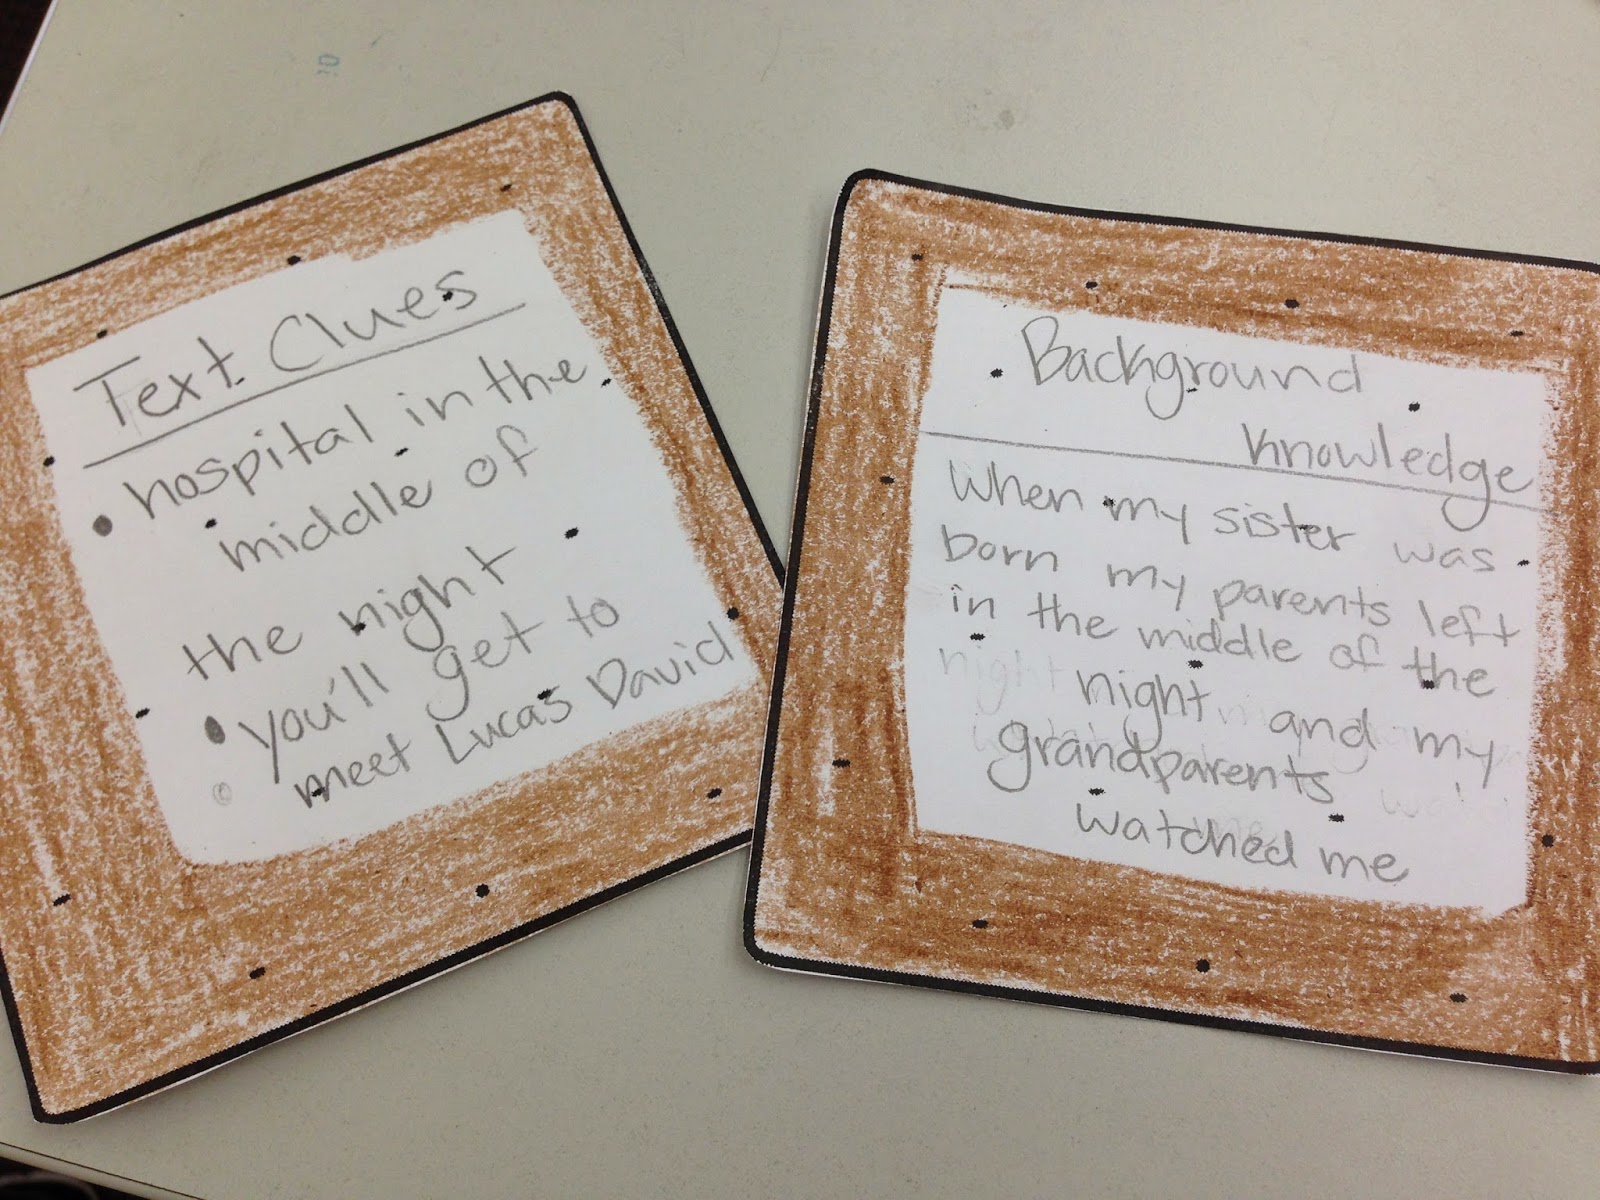 Text Clues
• hospital in the
middle of
the night
• you'll get to
meet Lucas David
Background
knowledge
When my sister was
born my parents left
in the middle of the
night and my
grandparents
watched me